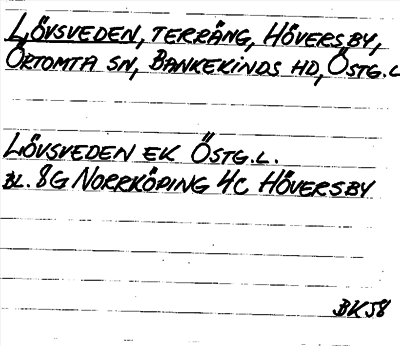 LÖVSVEDEN, TERRÄNG, HÖVERSBY,
ÖRTOMTA SN, BANKEKINDS HD, ÖSTG.L
LÖVSVEDEN EK ÖSTG.L.
BL. 8G NORRKÖPING 4C HÖVERSBY
BK58